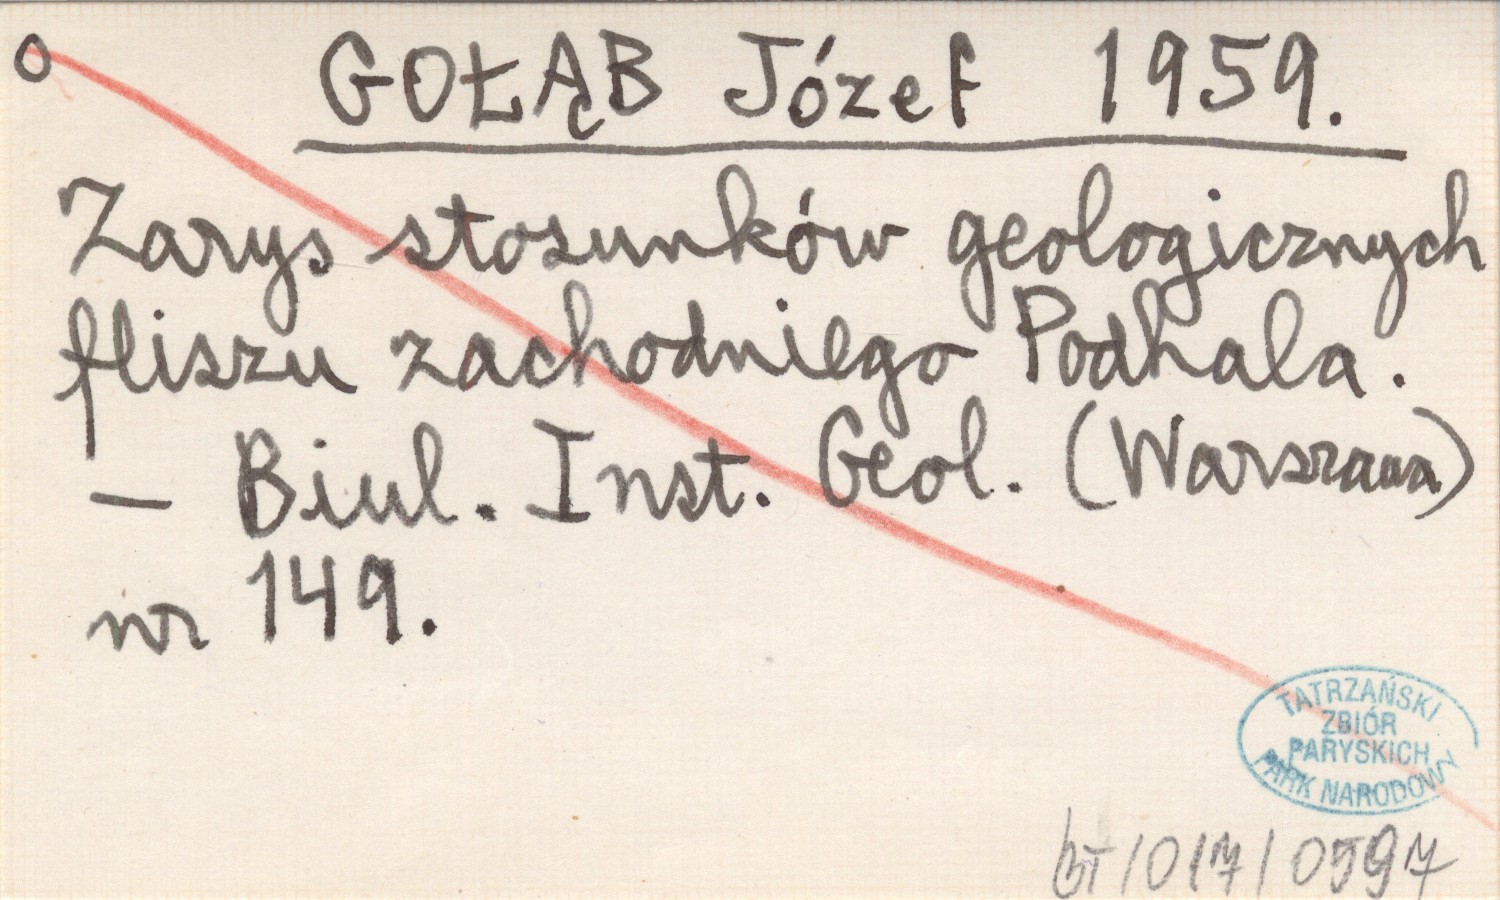 O GOŁĄB Józef 1959.
Zarys stosunków geologicznych
fliszu zachodniego Podhala.
— Biul. Inst. Geol. (Warszawa)
nr 149.
TATRZAŃSKI
ZBIÓR
PARYSKICH
PARK NARODOWY
BT/017/0597